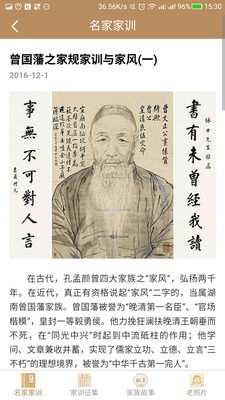 36.56K/s 15:30
名家家训
曾国藩之家规家训与家风(一)
2016-12-1
書有未曾经我讀
事無不可對人言
在古代，孔孟颜曾四大家族之“家风”，弘扬两千
年。在近代，真正有资格说起“风”二字的，当属湖
南曾国藩家族。曾国藩被誉为“晚清第一名臣”、“官场
楷模”，皇封一等毅勇侯。他力挽狂澜扶晚清王朝垂而
不死，在“同光中兴”时起到中流砥柱的作用；他学
问、文章兼收并蓄，实现了儒家立功、立德、立言“三
不朽”的理想境界，被誉为“中华千古第一完人”。
名家家训
家训征集
家族故事
老照片